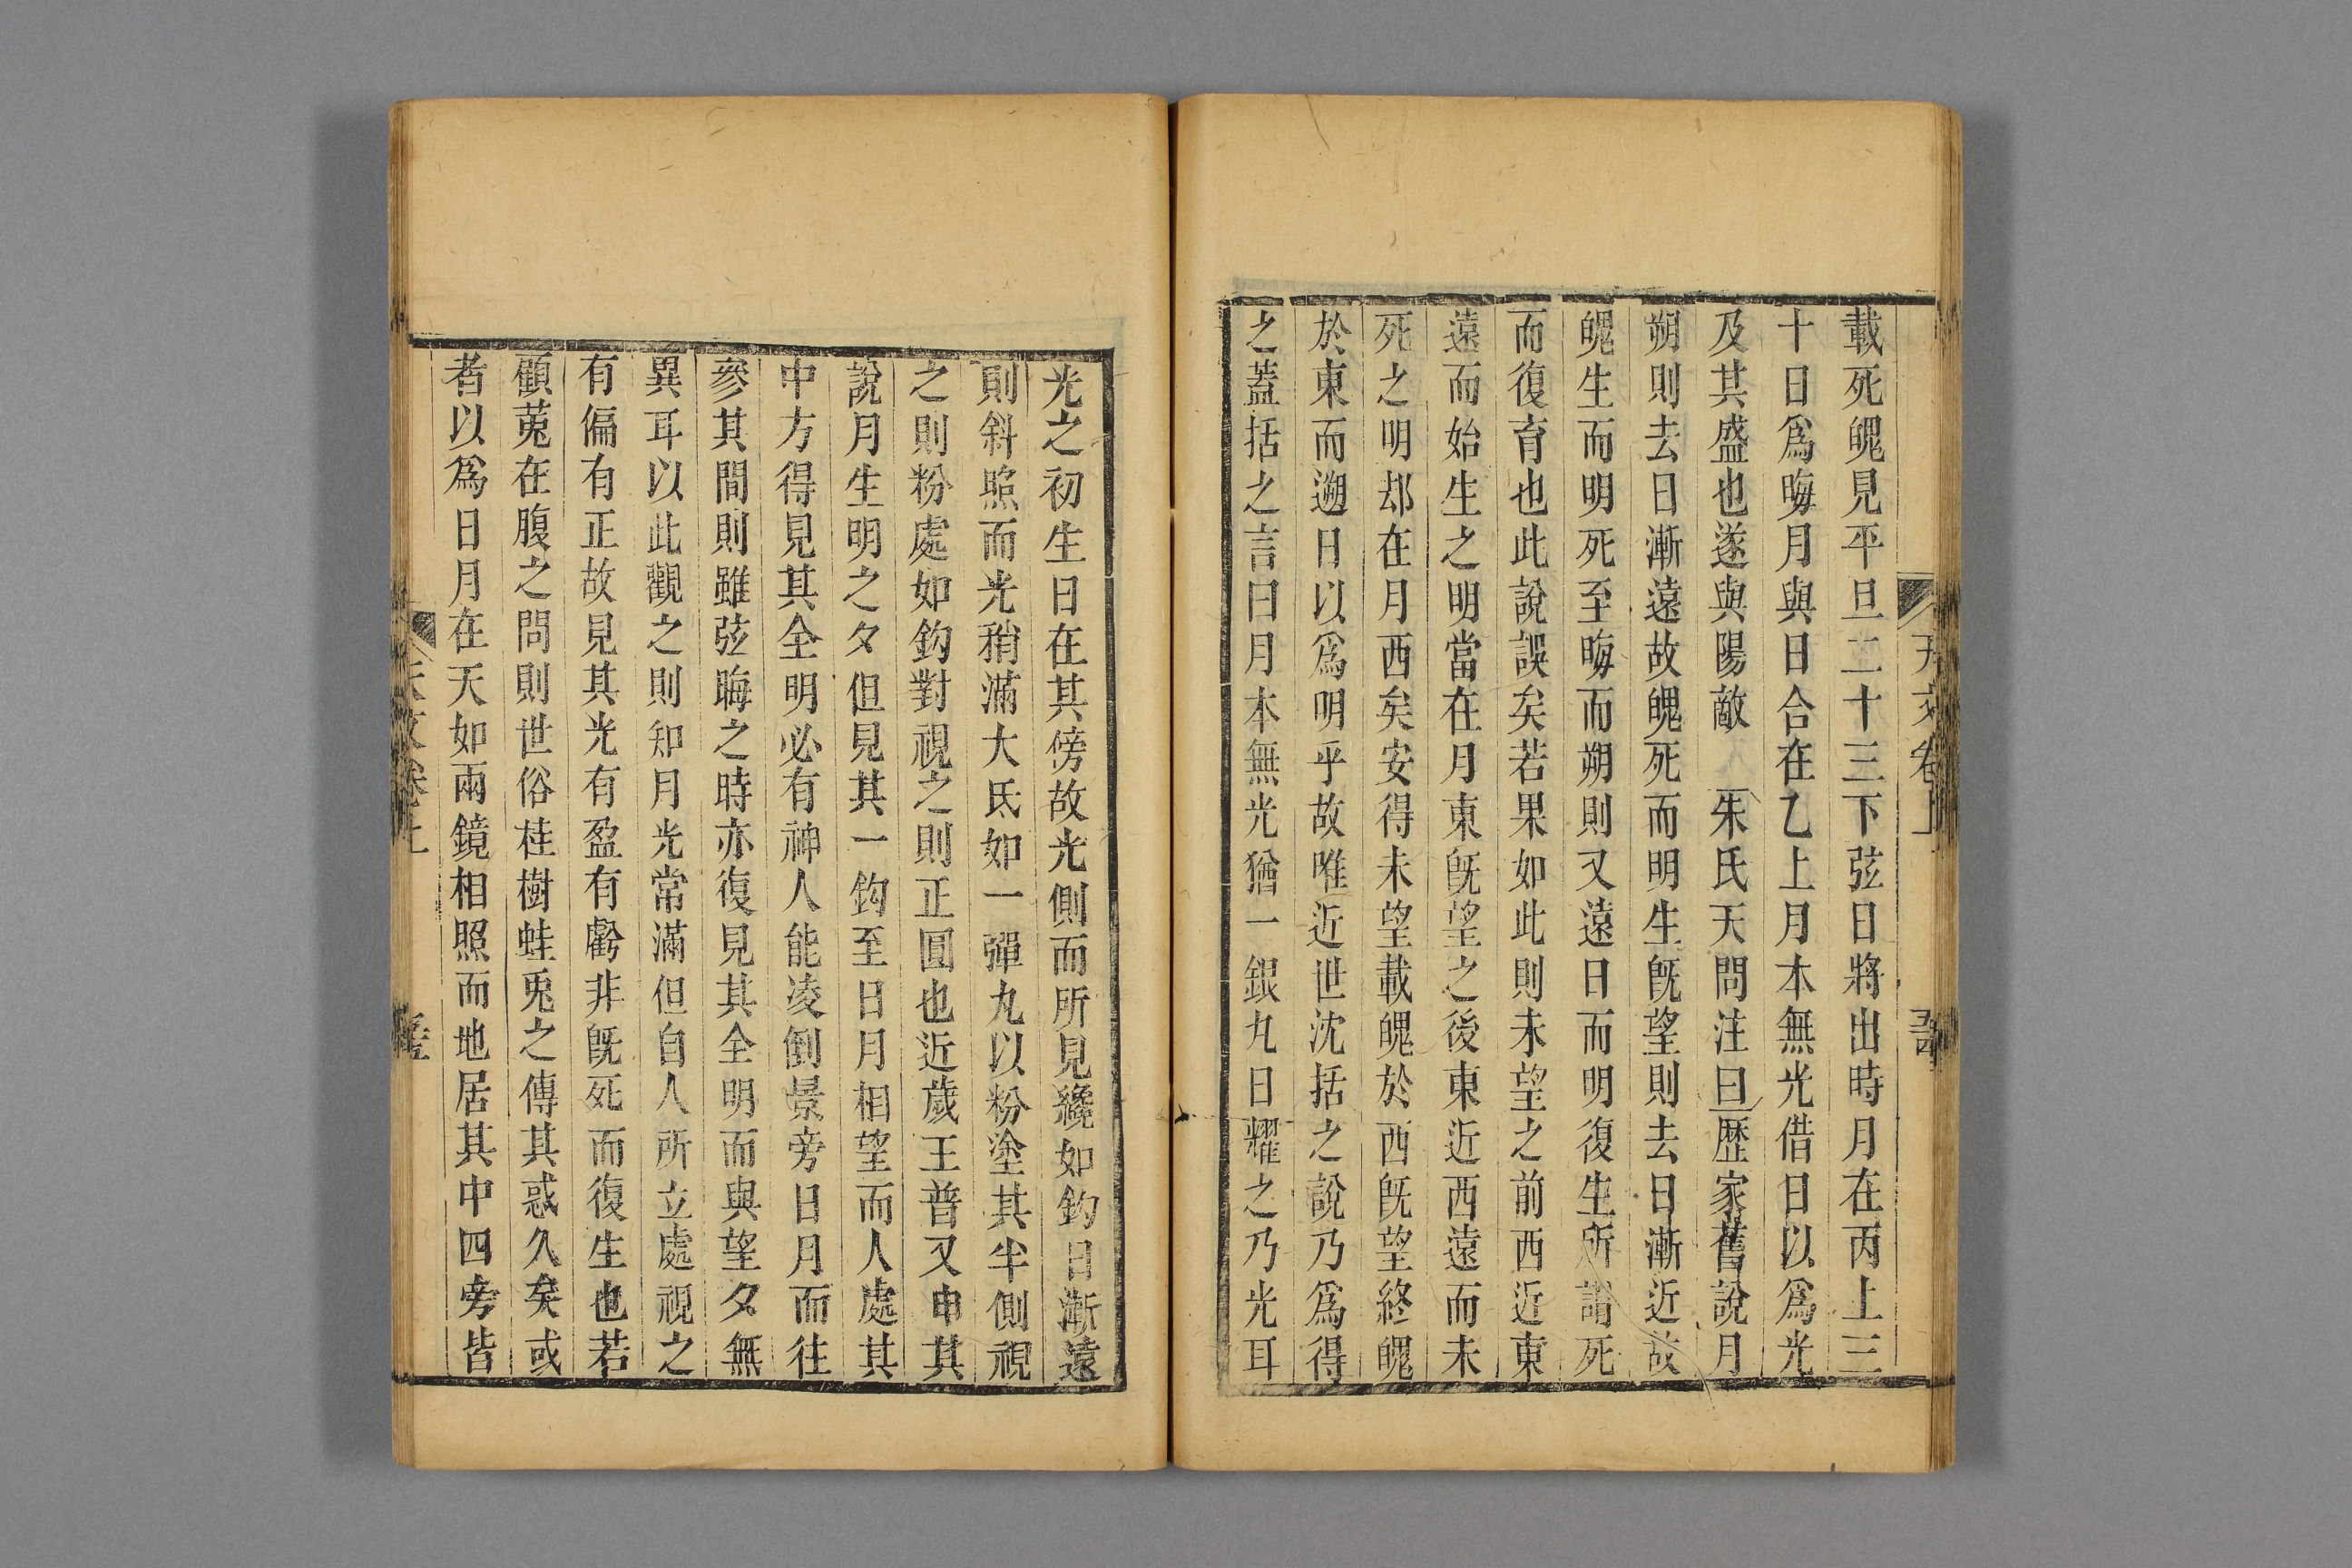 天文卷上
載死魄見平旦二十三下弦日將出時月在丙上三
十日爲晦月與日合在乙上月本無光借日以爲光
及其盛也遂與陽敵 朱氏天問注曰歴家舊說月
朔則去日漸遠故魄死而明生旣望則去日漸近故
魄生而明死至晦而朔則又遠日而明復生所謂死
而復育也此說誤矣若果如此則未望之前西近東
遠而始生之明當在月東旣望之後東近西遠而未
死之明却在月西矣安得未望載魄於西旣望終魄
於東而遡日以爲明乎故唯近世沈括之說乃爲得
之蓋括之言曰月本無光猶一銀丸日耀之乃光耳
光之初生日在其傍故光側而所見纔如鈎日漸遠
則斜照而光稍滿大氐如一彈丸以粉塗其半側視
之則粉處如鈎對視之則正圓也近歲王普又申其
說月生明之夕但見其一鈎至日月相望而人處其
中方得見其全明必有神人能凌倒景旁日月而往
參其間則雖弦晦之時亦復見其全明而與望夕無
異耳以此觀之則知月光常滿但自人所立處視之
有偏有正故見其光有盈有虧非旣死而復生也若
顧菟在腹之問則世俗桂樹蛙兎之傳其惑久矣或
者以爲日月在天如兩鏡相照而地居其中四旁皆
天文卷上